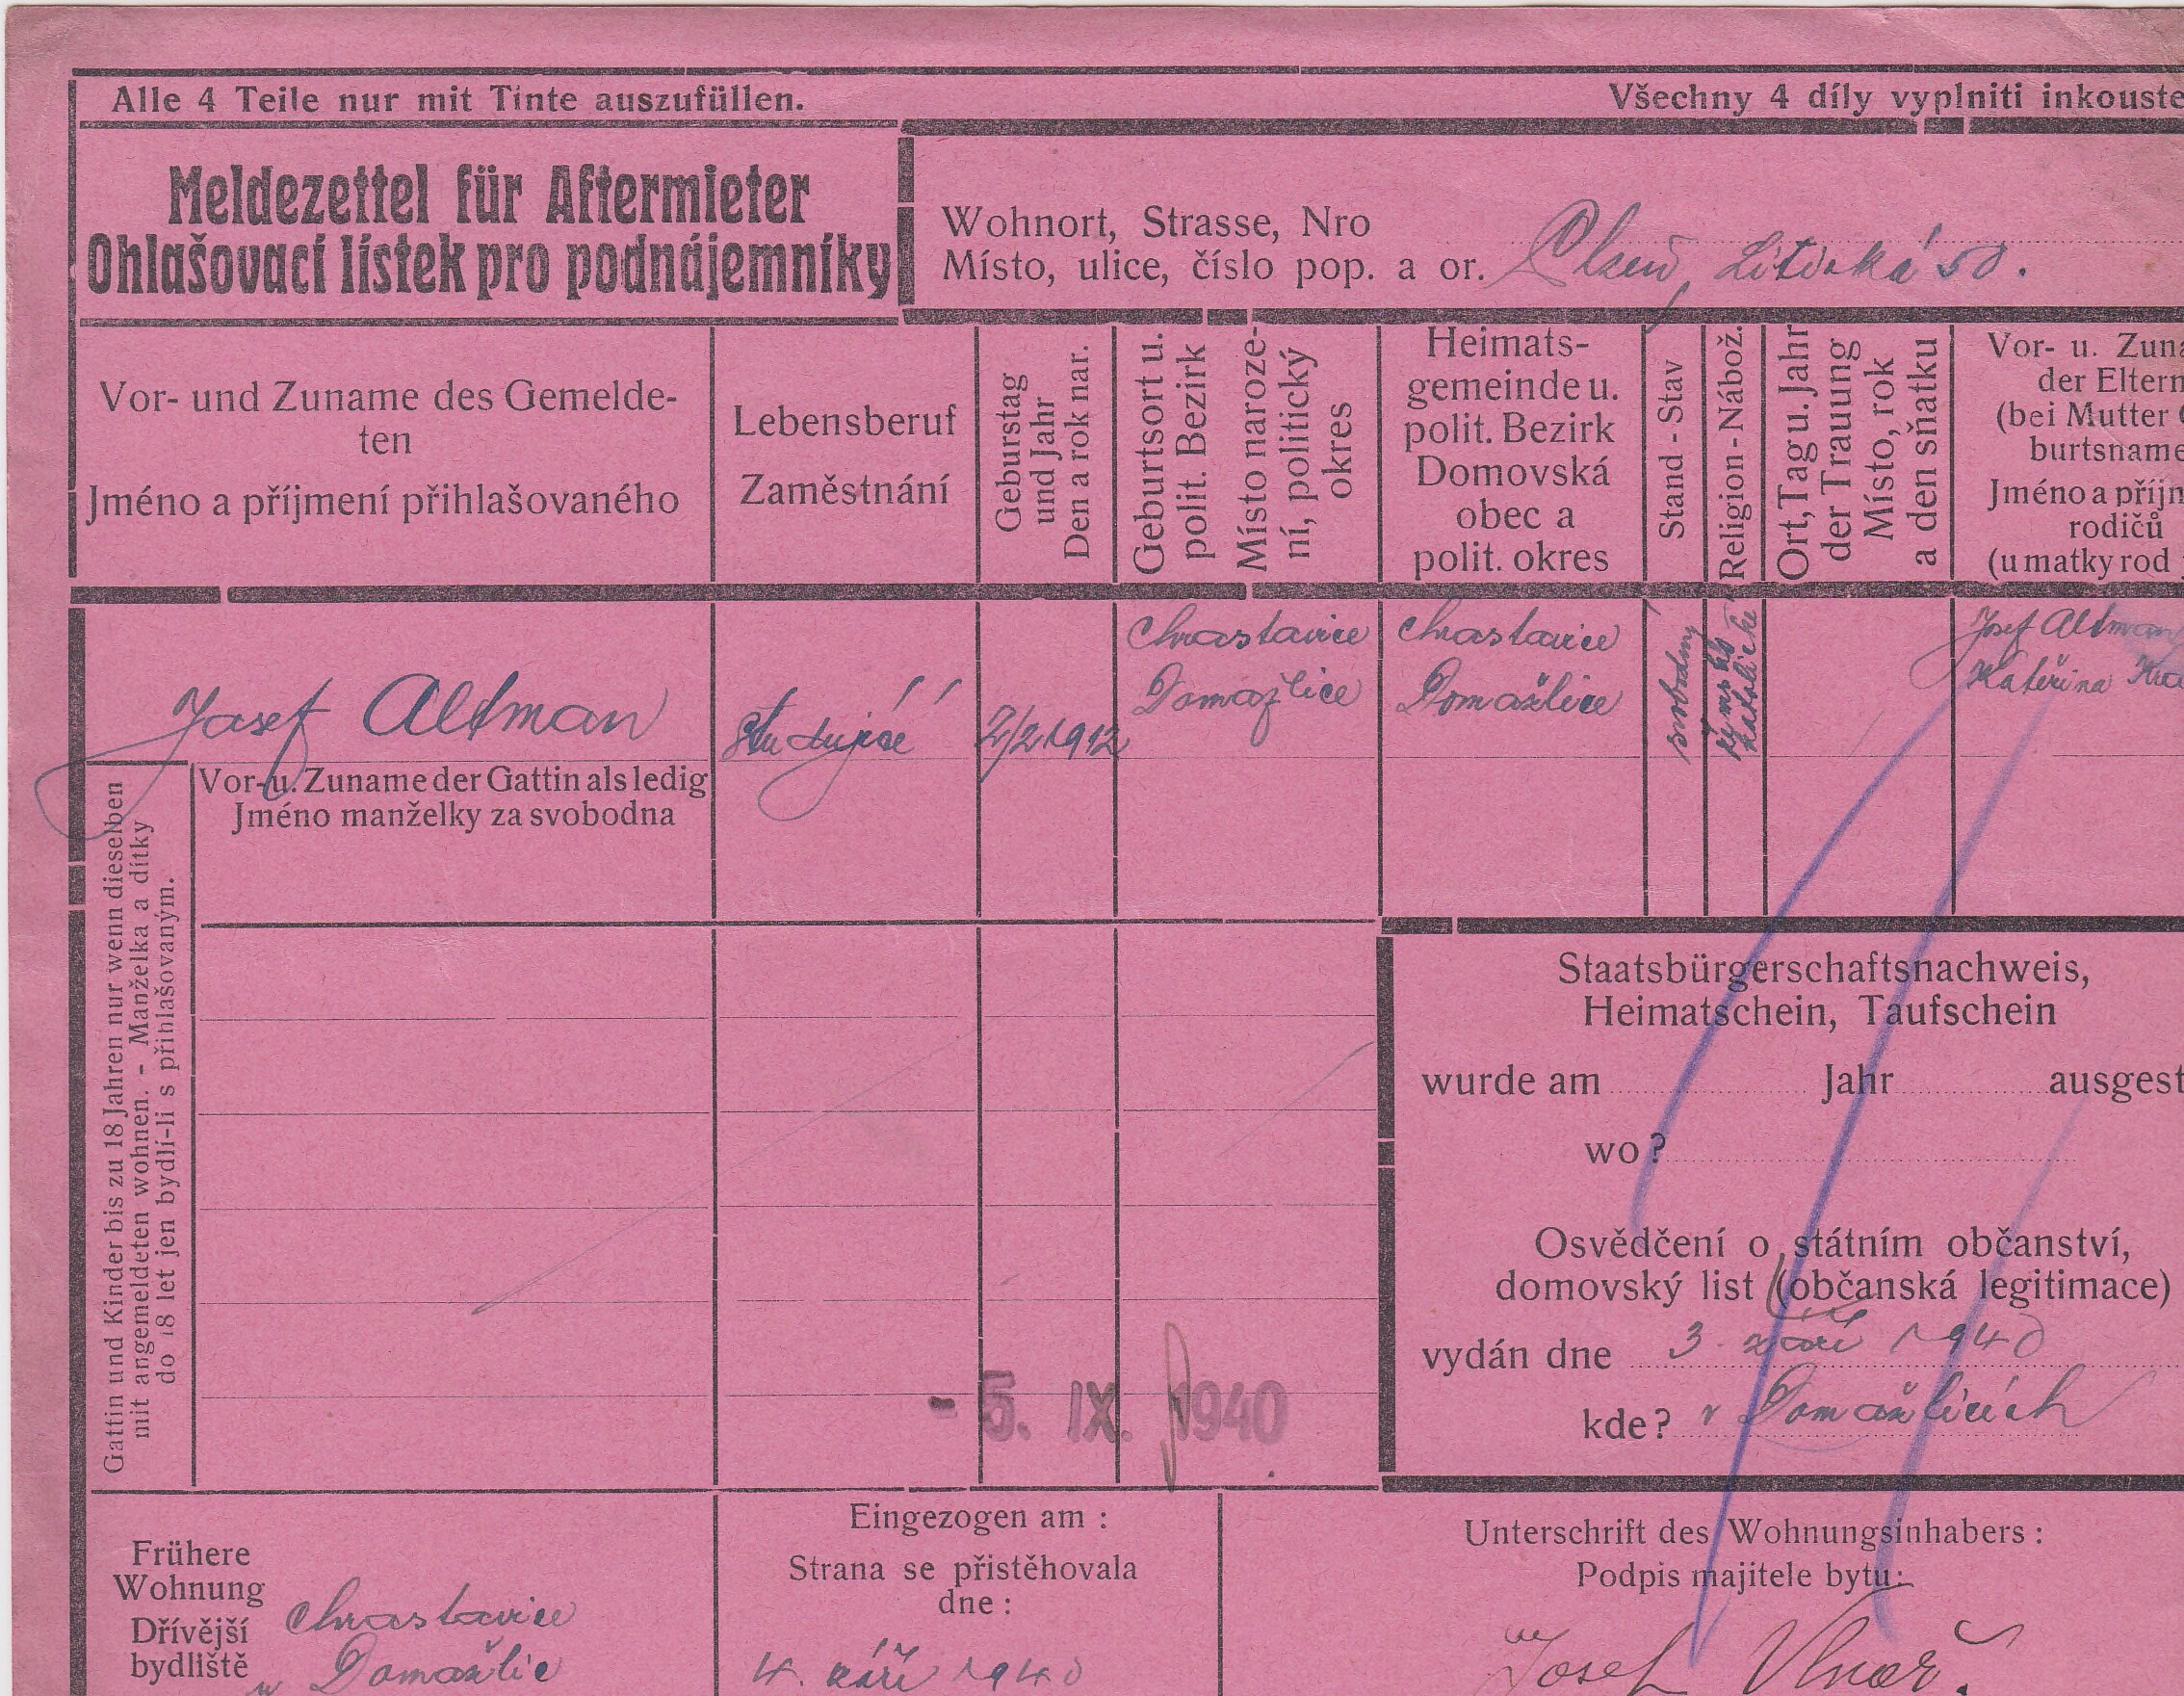 Alle 4 Teile nur mit Tinte auszufüllen.
Všechny 4 díly vyplniti inkouste
Meldezettel für Aftermieter
Ohlašovací lístek pro podnájemníky
Wohnort, Strasse, Nro
Místo, ulice, číslo pop. a or. Plzeň, Litická 50.
Vor- und Zuname des Gemelde-
ten
Jméno a příjmení přihlašovaného
Lebensberuf
Zaměstnání
Geburstag
und Jahr
Den a rok nar.
Geburtsort u.
polit. Bezirk
Místo naroze-
ní, politický
okres
Heimats-
gemeinde u.
polit. Bezirk
Domovská
obec a
polit. okres
Stand - Stav
Religion - Nábož.
Ort, Tag u. Jahr
der Trauung
Místo, rok
a den sňatku
Vor- u. Zuna
der Eltern
(bei Mutter G
burtsname
Jméno a příjm
rodičů
(u matky rod
Josef Altman
studující
2/2 1912
Chrastavice
Domažlice
Chrastavice
Domažlice
svobodný
římsko
katolické
Josef Altman
Kateřina
Vor- u. Zuname der Gattin als ledig
Jméno manželky za svobodna
Gattin und Kinder bis zu 18 Jahren nur wenn dieselben
mit angemeldeten wohnen. - Manželka a dítky
do 18 let jen bydlí-li s přihlašovaným.
Staatsbürgerschaftsnachweis,
Heimatschein, Taufschein
wurde am Jahr ausgest
wo?
Osvědčení o státním občanství,
domovský list (občanská legitimace)
vydán dne 3. září 1940
kde? v Domažlicích
- 5. IX. 1940
Frühere
Wohnung
Dřívější
bydliště
Chrastavice
u Domažlic
Eingezogen am :
Strana se přistěhovala
dne :
4. září 1940
Unterschrift des Wohnungsinhabers :
Podpis majitele bytu:
Josef